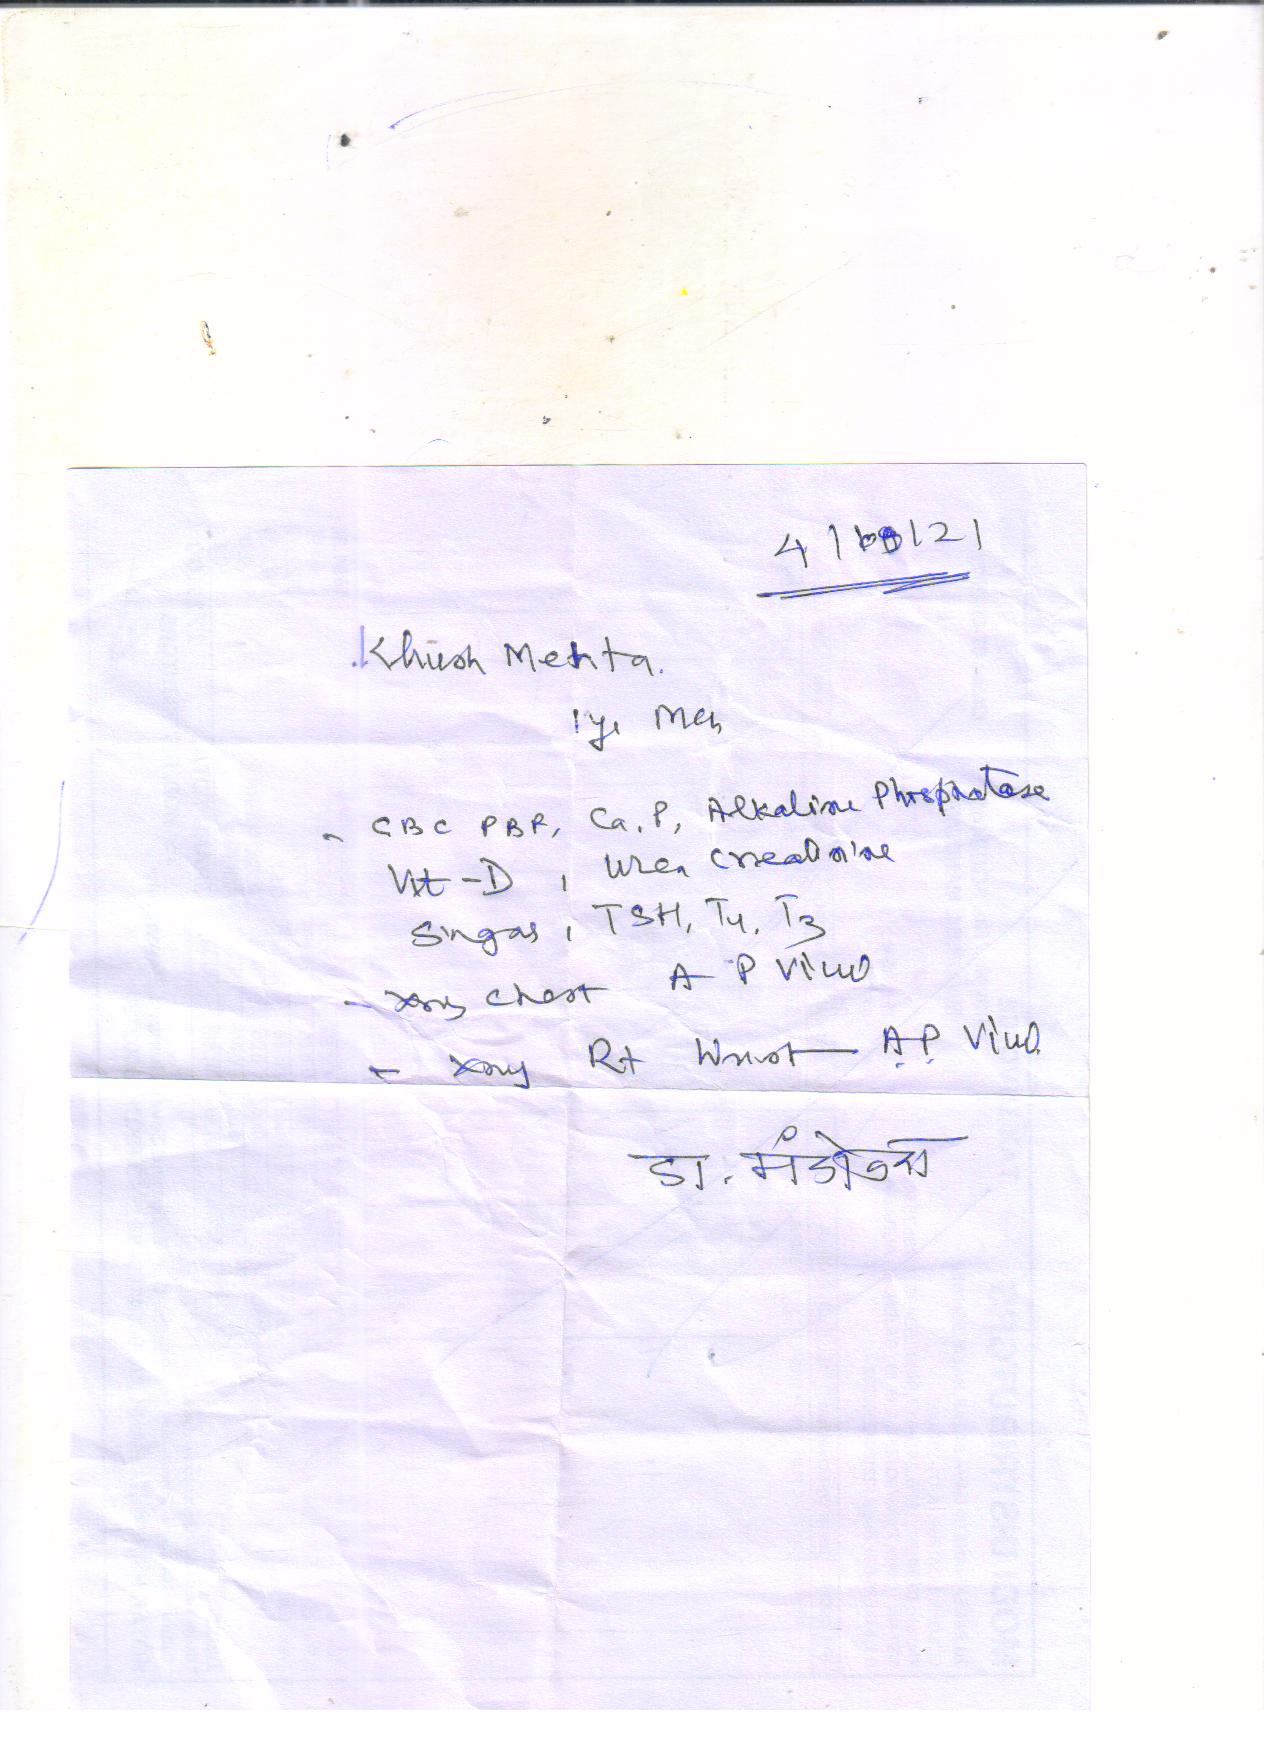 4/08/21
Khush Mehta.
1 yr
- CBC PBF, Ca, P, Alkaline Phosphatase
Vit-D, Urea Creatinine
TSH, T4, T3
- Xray Chest A P View
- Xray Rt Wrist — A.P. View
डा.